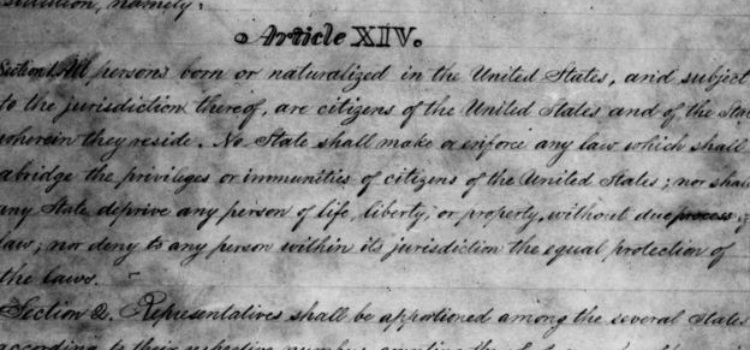 stitution, namely:
Article XIV.
Section 1. All persons born or naturalized in the United States, and subject
to the jurisdiction thereof, are citizens of the United States and of the Stat
wherein they reside. No State shall make or enforce any law which shall
abridge the privileges or immunities of citizens of the United States; nor shall
any State deprive any person of life, liberty, or property, without due process of
law; nor deny to any person within its jurisdiction the equal protection of
the laws.
Section 2. Representatives shall be apportioned among the several States
according to their respective numbers, counting the